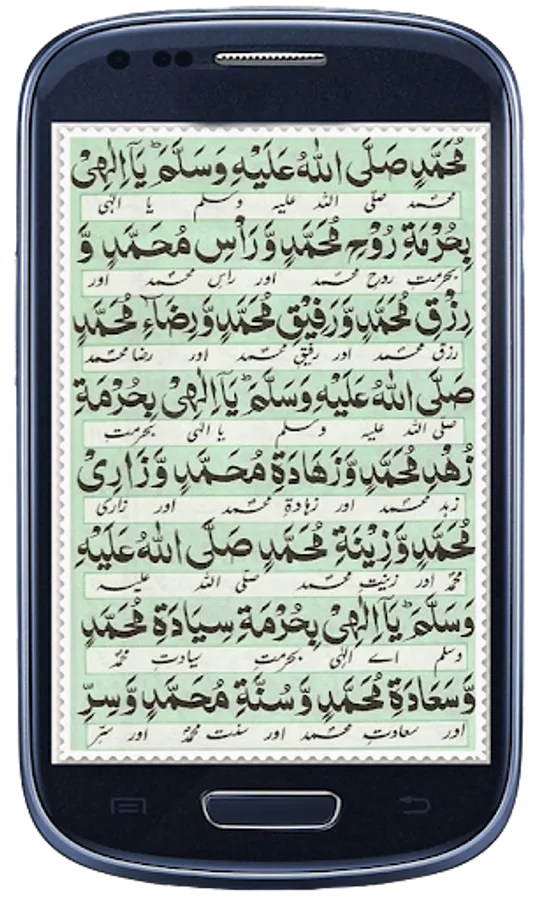 مُحَمَّدٍ صَلَّى اللهُ عَلَيْهِ وَسَلَّمَ ؕ يَآ اِلٰهِيْ
محمد صلّی اللہ علیہ وسلم یا الٰہی
بِحُرْمَةِ رُوْحِ مُحَمَّدٍ وَّرَأْسِ مُحَمَّدٍ وَّ
بحرمتِ روحِ محمد اور راسِ محمد اور
رِزْقِ مُحَمَّدٍ وَّرَفِيْقِ مُحَمَّدٍ وَّرِضَاءِ مُحَمَّدٍ
رزق محمد اور رفیق محمد اور رضا محمد
صَلَّى اللهُ عَلَيْهِ وَسَلَّمَ ؕ يَآ اِلٰهِيْ بِحُرْمَةِ
صلی اللہ علیہ وسلم یا الٰہی بحرمتِ
زُهْدِ مُحَمَّدٍ وَّزَهَادَةِ مُحَمَّدٍ وَّزَارِيْ
زہد محمد اور زہادۃِ محمد اور زاری
مُحَمَّدٍ وَّزِيْنَةِ مُحَمَّدٍ صَلَّى اللهُ عَلَيْهِ
محمدؐ اور زینتِ محمد صلی اللہ علیہ
وَسَلَّمَ ؕ يَآ اِلٰهِيْ بِحُرْمَةِ سِيَادَةِ مُحَمَّدٍ
وسلم اے الٰہی بحرمتِ سیادتِ محمدؐ
وَّسَعَادَةِ مُحَمَّدٍ وَّسُنَّةِ مُحَمَّدٍ وَّسِرِّ
اور سعادتِ محمد اور سنت محمدؐ اور سرِّ